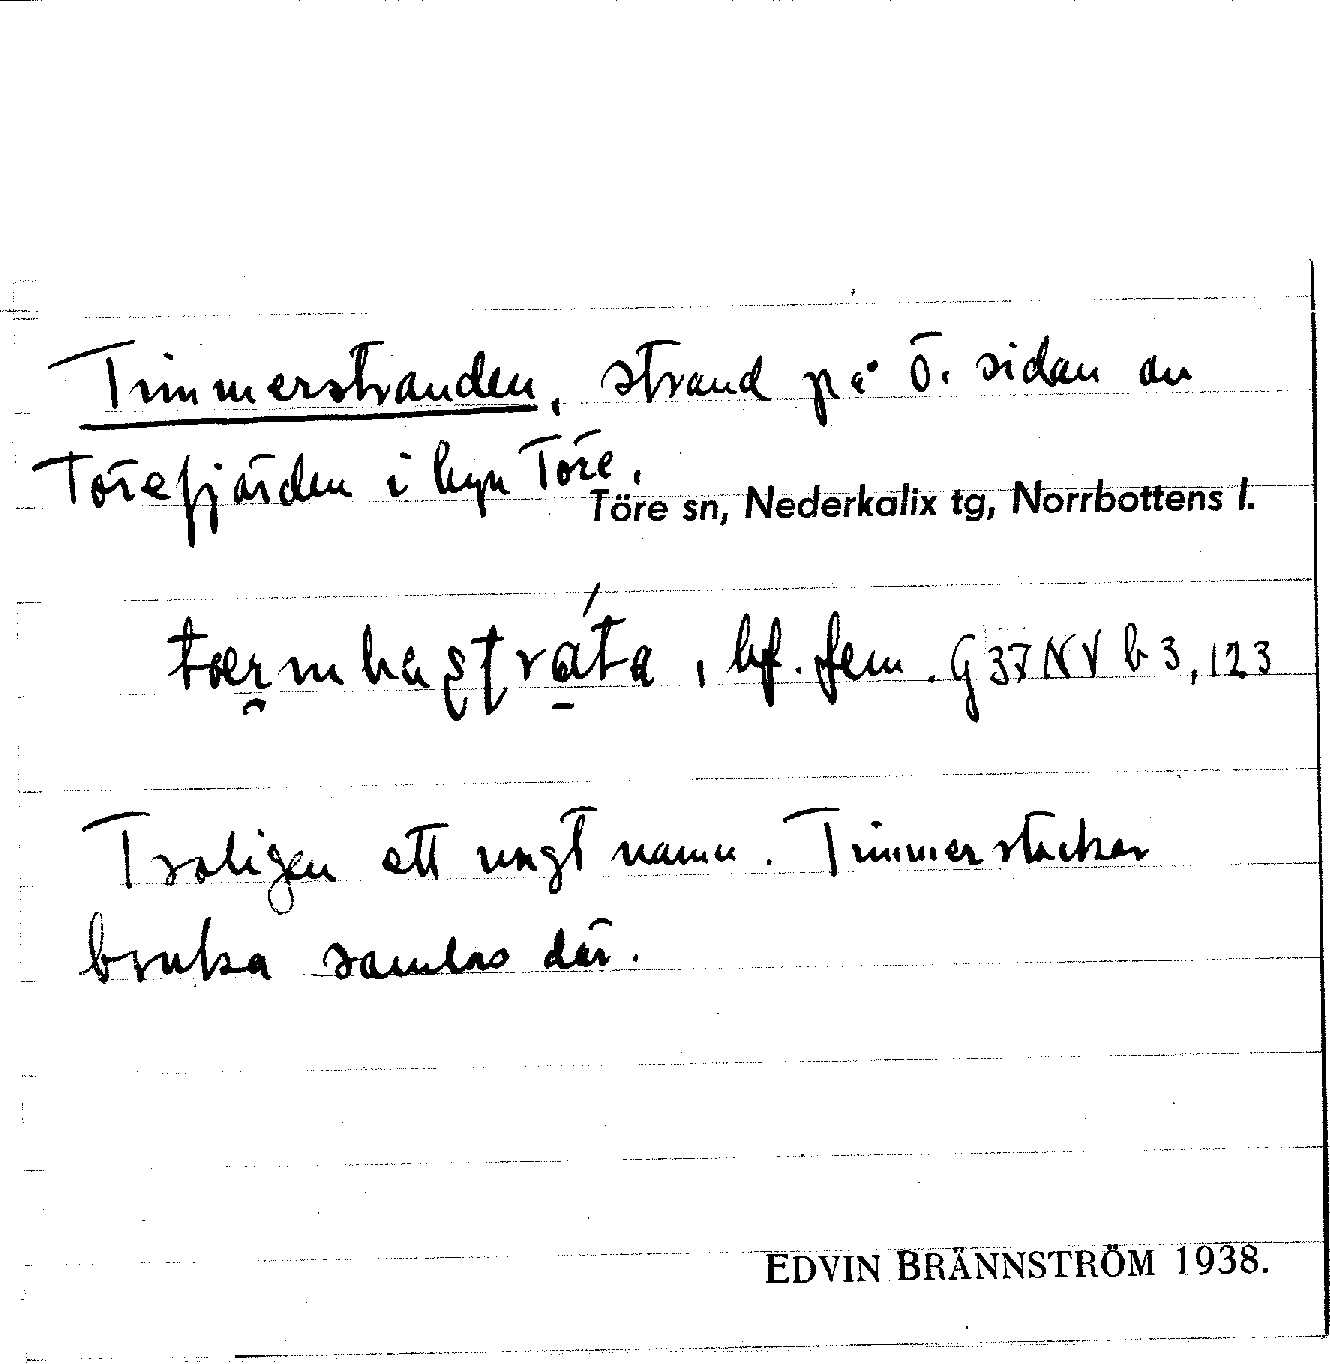 Timmerstranden, strand på ö. sidan av
Törefjärden i byn Töre.
Töre sn, Nederkalix tg, Norrbottens l.
bf. fem. G37NV b 3, 123
Troligen ett ungt namn. Timmerstockar
bruka samlas där.
EDVIN BRÄNNSTRÖM 1938.